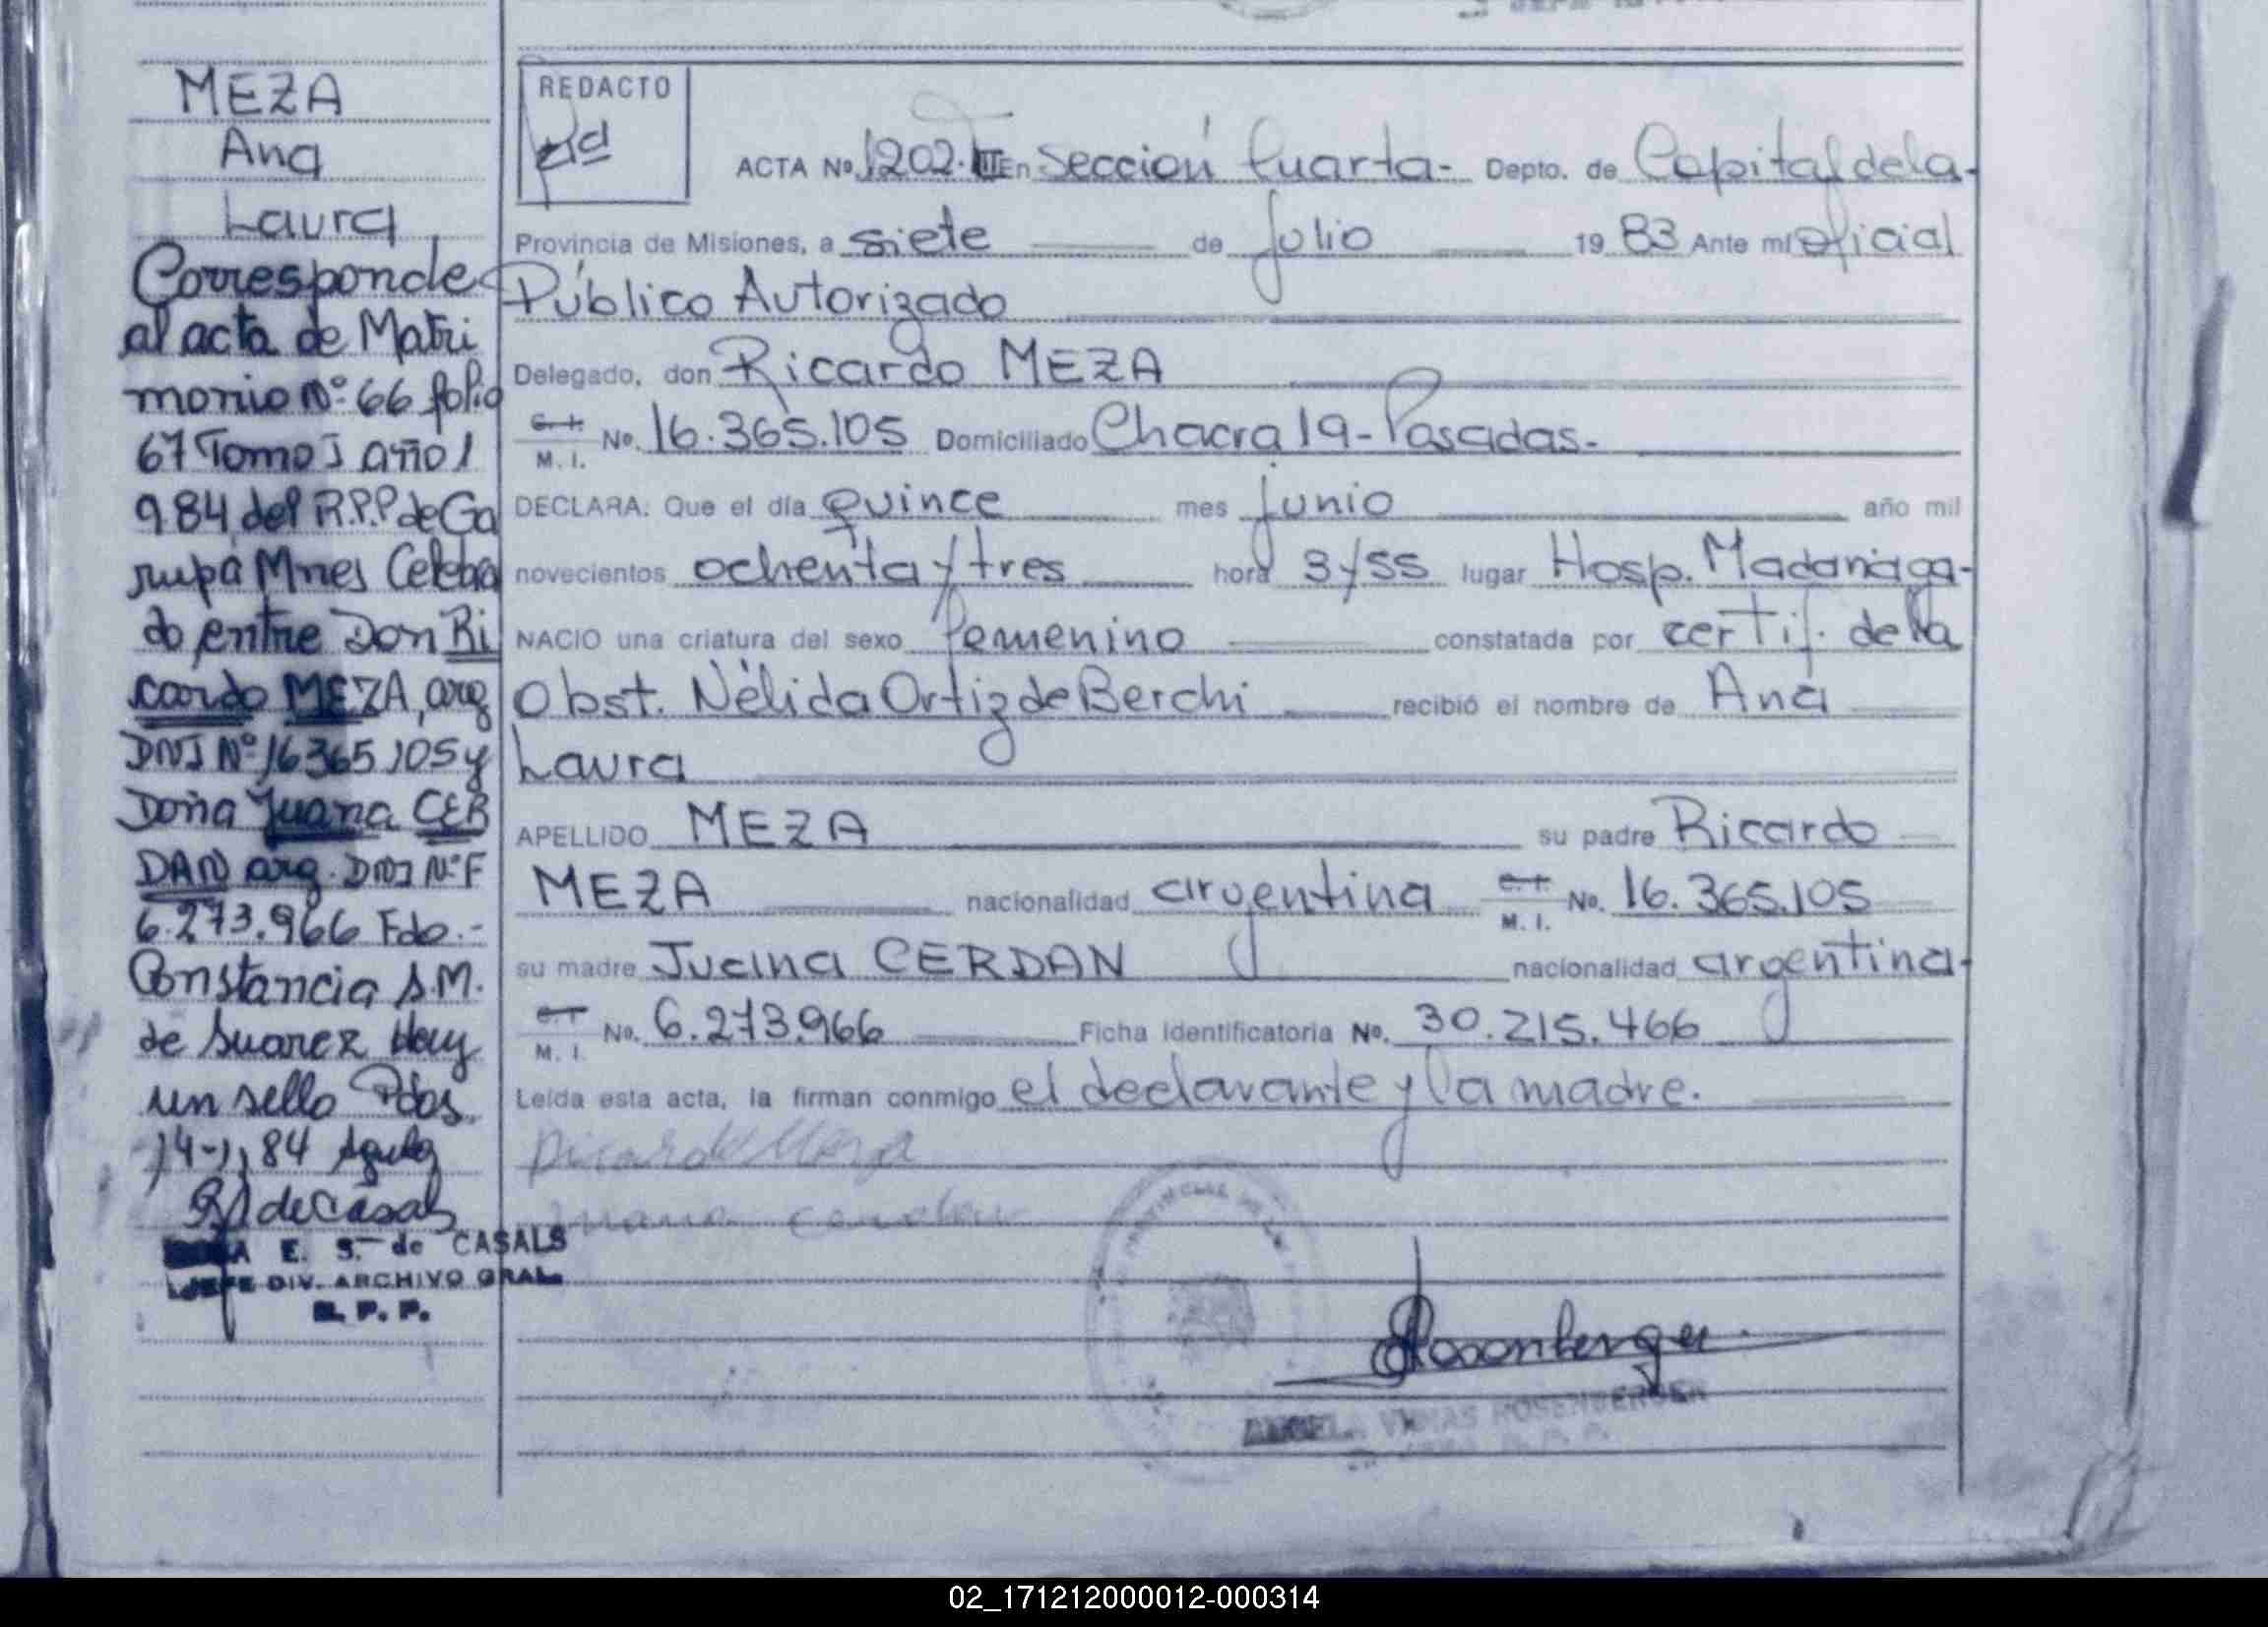 MEZA
Ana
Laura
Corresponde
al acta de Matri
monio Nº 66 folio
67 Tomo I año 1
984 del R.P.P de Ga
rupá Mnes Celebra
do entre Don Ri
cardo MEZA, arg
DNI Nº 16365105 y
Doña Juana CER
DAN arg. DNI Nº F
6.273.966 Fdo.-
Constancia S.M.
de Suarez Hay
un sello Pdas.
14-11 84
de Casals
A E. S. de CASALS
JEFE DIV. ARCHIVO GRAL.
R. P. P.
REDACTO
ACTA Nº 1202-III En Sección Cuarta- Depto. de Capital de la-
Provincia de Misiones, a siete de Julio 19 83 Ante mí Oficial
Público Autorizado
Delegado, don Ricardo MEZA
C. I. M. I. No. 16.365.105 Domiciliado Chacra 19-Posadas-
DECLARA: Que el día quince mes junio año mil
novecientos ochenta y tres hora 3 y 55 lugar Hosp. Madariaga-
NACIO una criatura del sexo femenino constatada por certif. de la
Obst. Nélida Ortiz de Berchi recibió el nombre de Ana
Laura
APELLIDO MEZA su padre Ricardo
MEZA nacionalidad argentina C. I. M. I. No. 16.365.105
su madre Juana CERDAN nacionalidad argentina-
C. I. M. I. No. 6.273.966 Ficha Identificatoria No. 30.215.466
Leída esta acta, la firman conmigo el declarante y la madre.
Ricardo Meza
Juana Cerdan
Rosenberger
ROSENBERGER
02_171212000012-000314